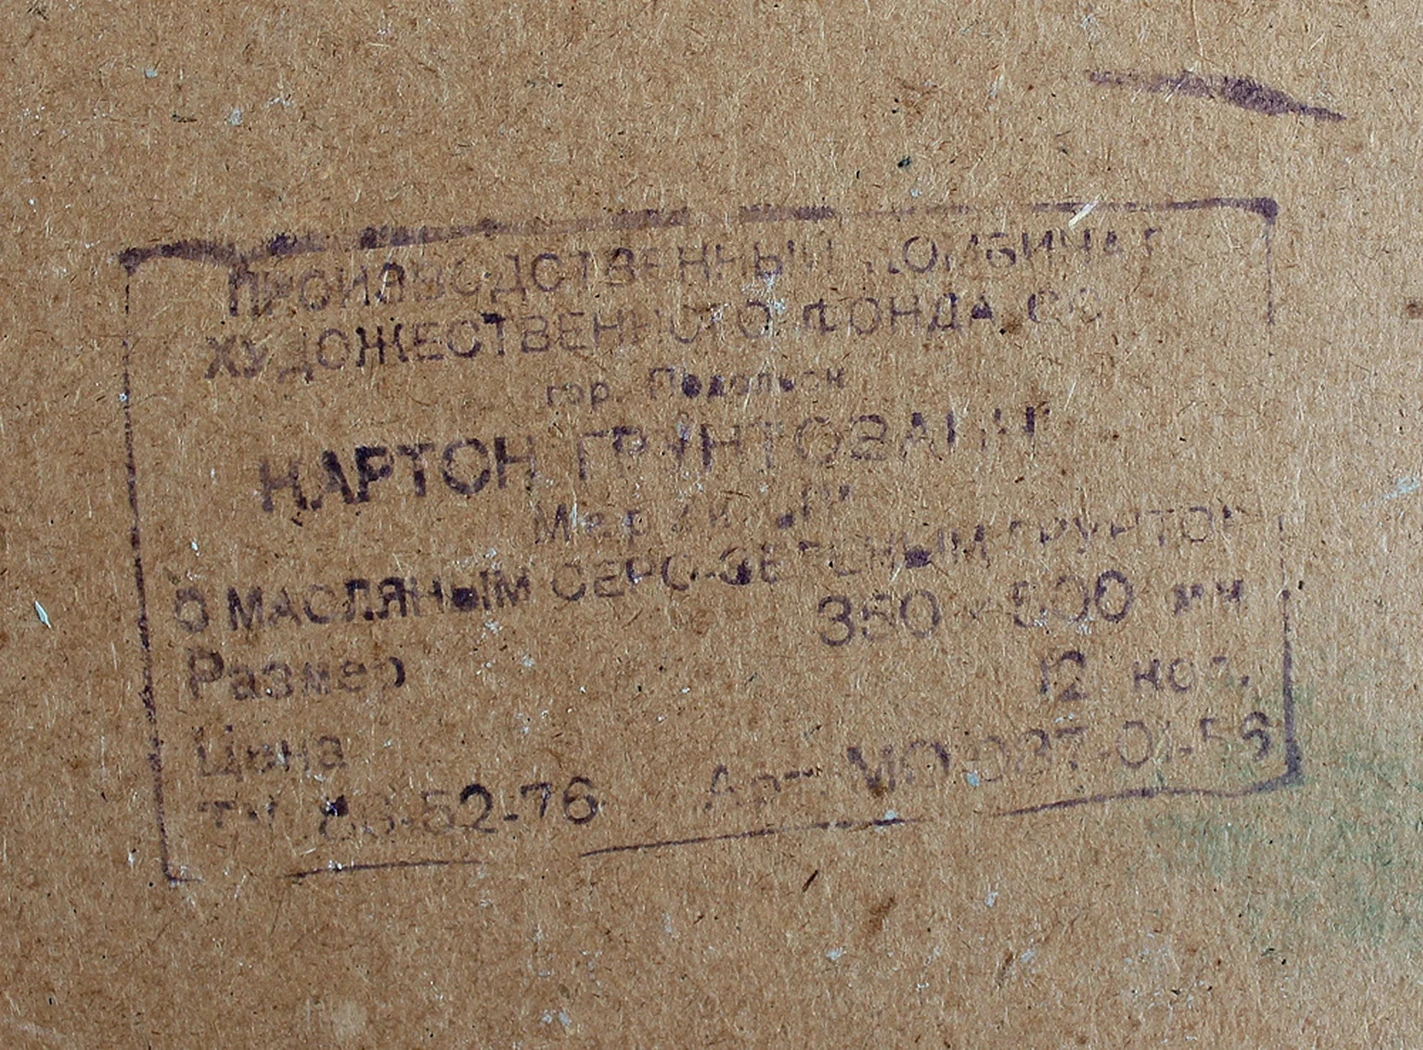 ПРОИЗВОДСТВЕННЫЙ КОМБИНАТ
ХУДОЖЕСТВЕННОГО ФОНДА
гор. Подольск
КАРТОН ГРУНТОВАНН
Марки
С МАСЛЯНЫМ СЕРО-ЗЕЛЕНЫМ ГРУНТОМ
Размер 350 × 500 мм
Цена 12 коп.
ТУ 63-52-76 Арт МО 987-01-56